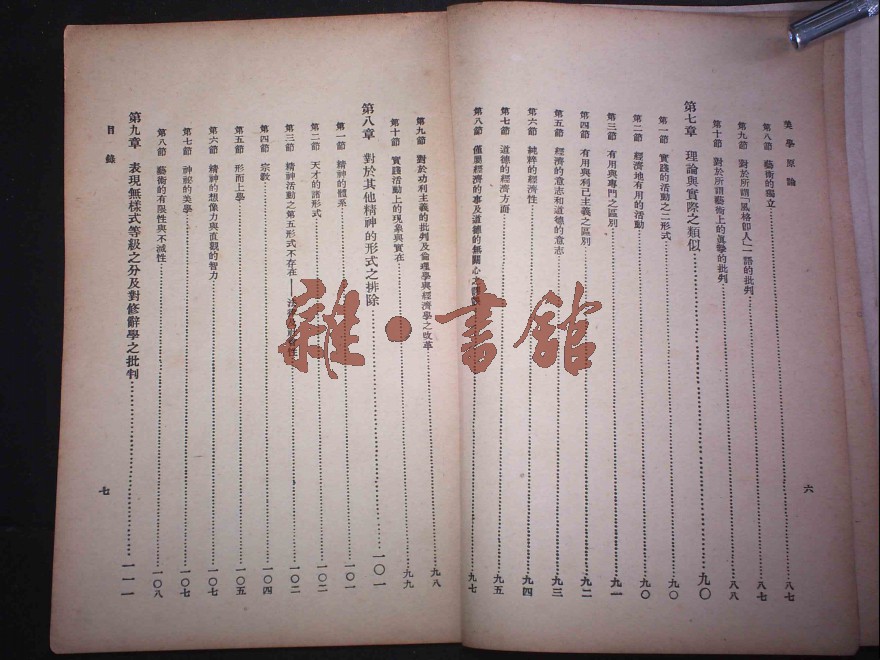 美學原論
第八節 藝術的獨立 八七
第九節 對於所謂「風格卽人」一語的批判 八七
第十節 對於所謂藝術上的眞摯的批判 八八
第七章 理論與實際之類似 九〇
第一節 實踐的活動之二形式 九〇
第二節 經濟地有用的活動 九〇
第三節 有用與專門之區別 九一
第四節 有用與利己主義之區別 九二
第五節 經濟的意志和道德的意志 九三
第六節 純粹的經濟性 九四
第七節 道德的經濟方面 九五
第八節 僅屬經濟的事及道德的無關心之 九七
六
第九節 對於功利主義的批判及倫理學與經濟學之改革 九八
第十節 實踐活動上的現象與實在 九九
第八章 對於其他精神的形式之排除 一〇一
第一節 精神的體系 一〇一
第二節 天才的諸形式 一〇二
第三節 精神活動之第五形式不存在——法律 性 一〇二
第四節 宗教 一〇四
第五節 形而上學 一〇五
第六節 精神的想像力與直觀的智力 一〇七
第七節 神祕的美學 一〇七
第八節 藝術的有限性與不滅性 一〇八
第九章 表現無樣式等級之分及對修辭學之批判 一一一
目錄
七
雜·書館